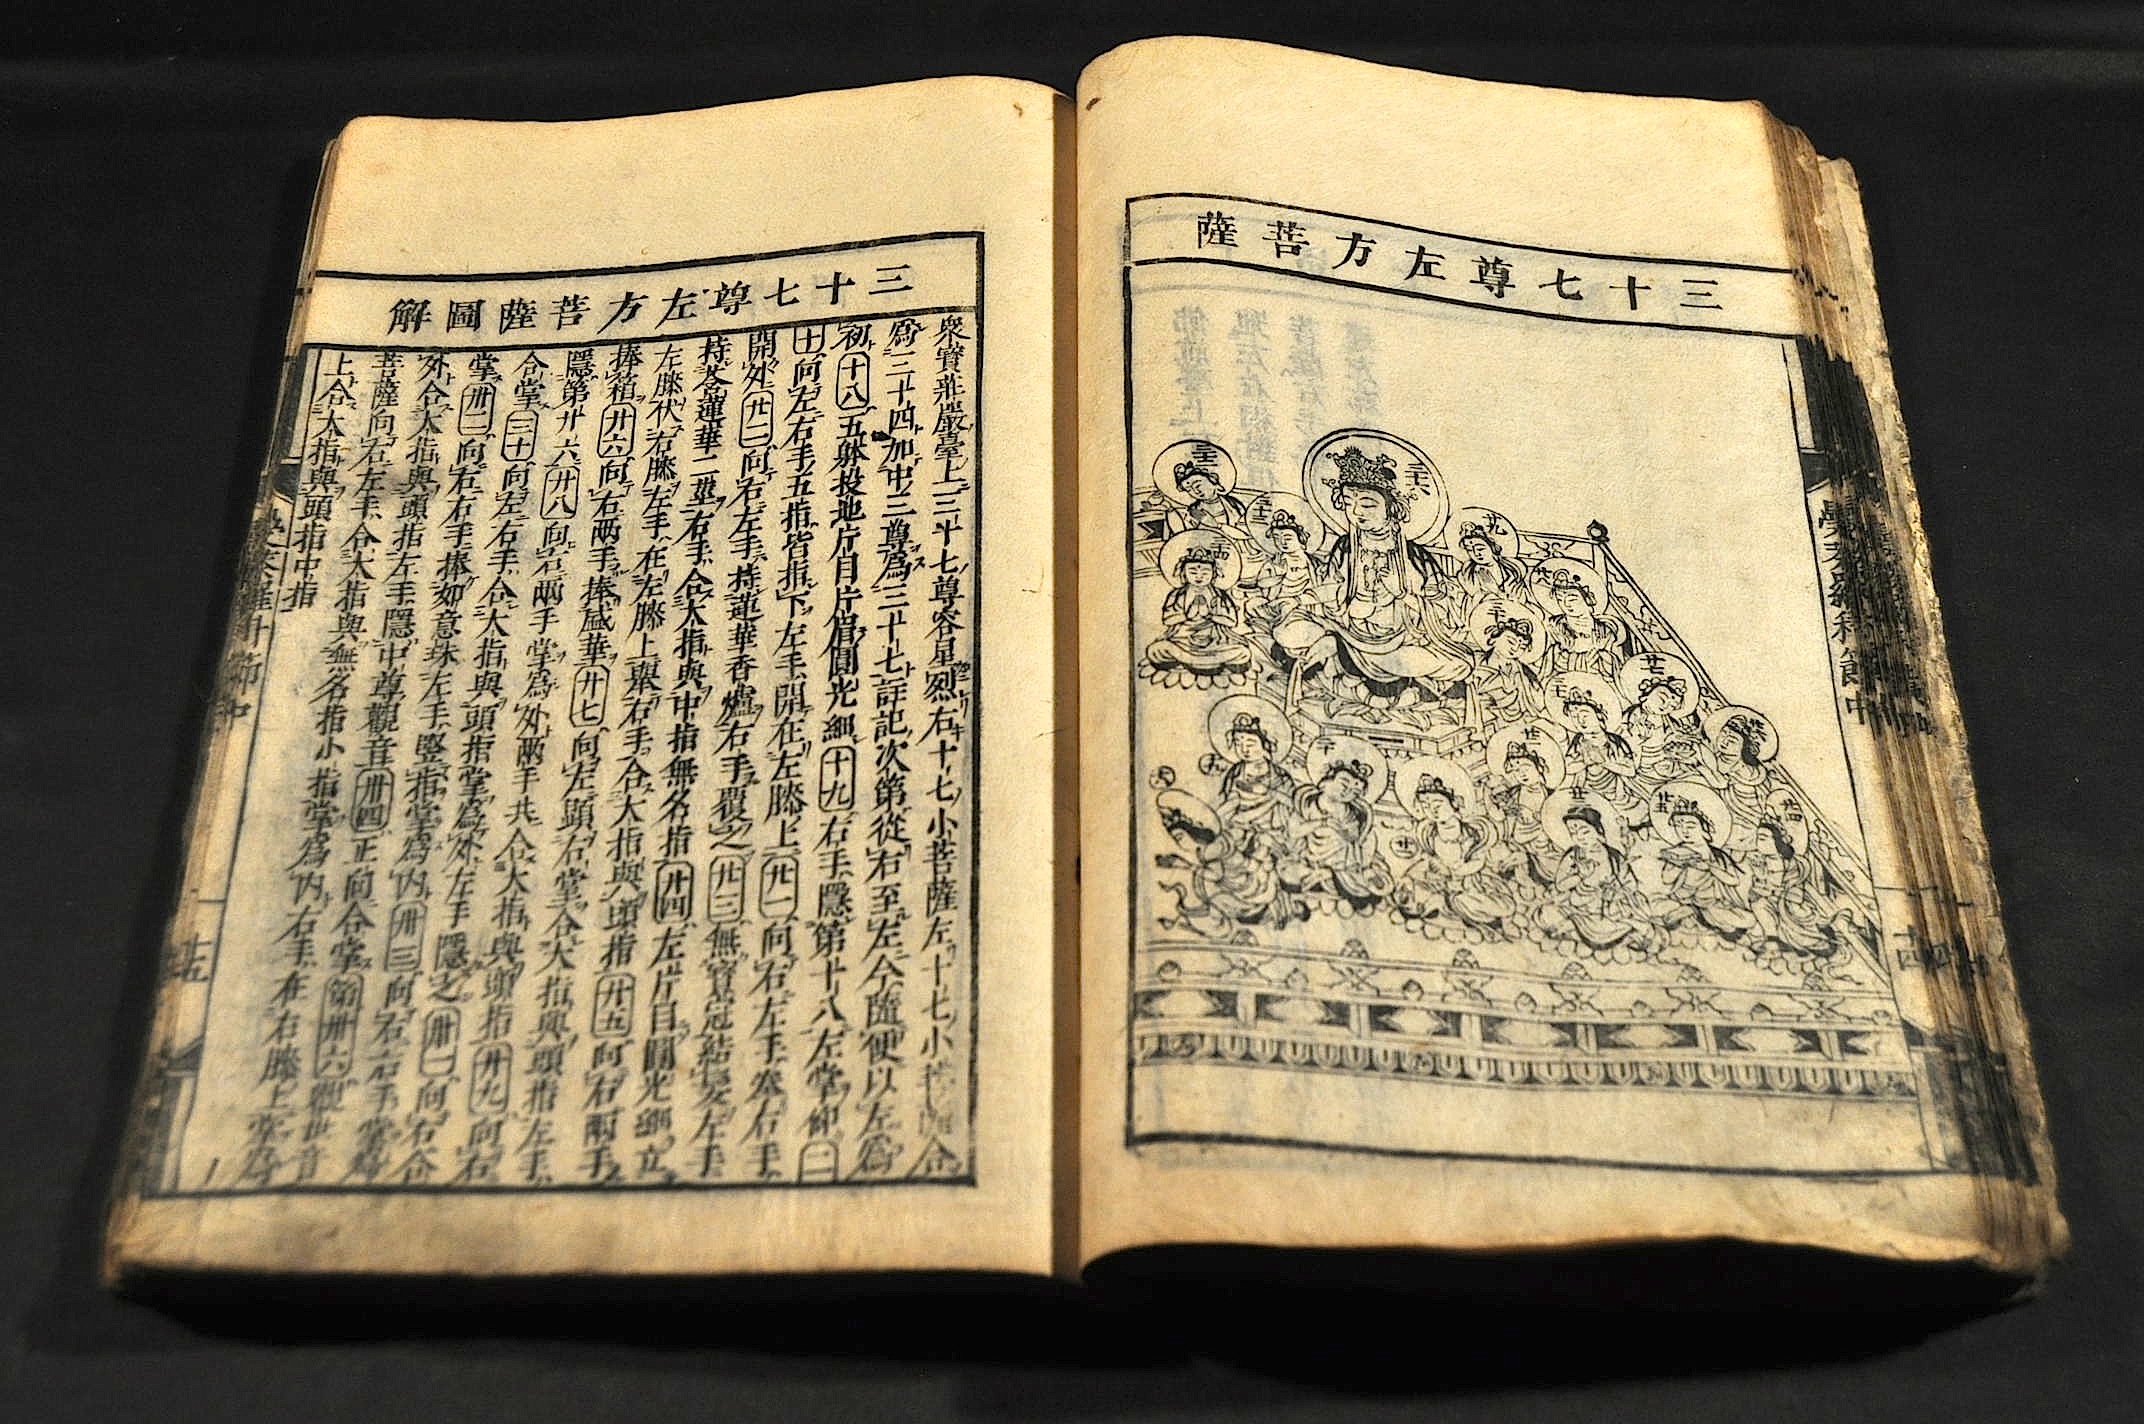 三十七尊左方菩薩
三十七尊左方菩薩圖解
衆寳莊嚴臺上三十七尊容星烈右十七小菩薩左十七小菩薩合
為三十四加中三尊為三十七註記次第從右至左今隨便以左為
初十八五躰投地片目片眉圓光細十九右手隱第十八左掌仰二
十向左右手五指皆指下左手開在左膝上廿一向右左手奉右手
開外廿二向右左手持蓮華香爐右手覆之廿三無寳冠結髮左手
持莟蓮華二莖右手合大指與中指無名指廿四左片目圓光細立
左膝伏右膝左手在左膝上舉右手合大指與頭指廿五向右兩手
捧箱廿六向右兩手捧盛華廿七向左顕右掌合大指與頭指左手
隱第廿六廿八向右兩手掌為外兩手共合大指與頭指廿九向右
合掌三十向左右手合大指與頭指掌為外左手隱之卅一向右合
掌卅二向右右手捧如意珠左手竪指掌為内卅三向右右手掌為
外合大指與頭指左手隱中尊觀音卅四正向合掌第卅六觀世音
菩薩向右左手合大指與無名指小指掌為内右手在右膝上掌為
上合大指與頭指中指